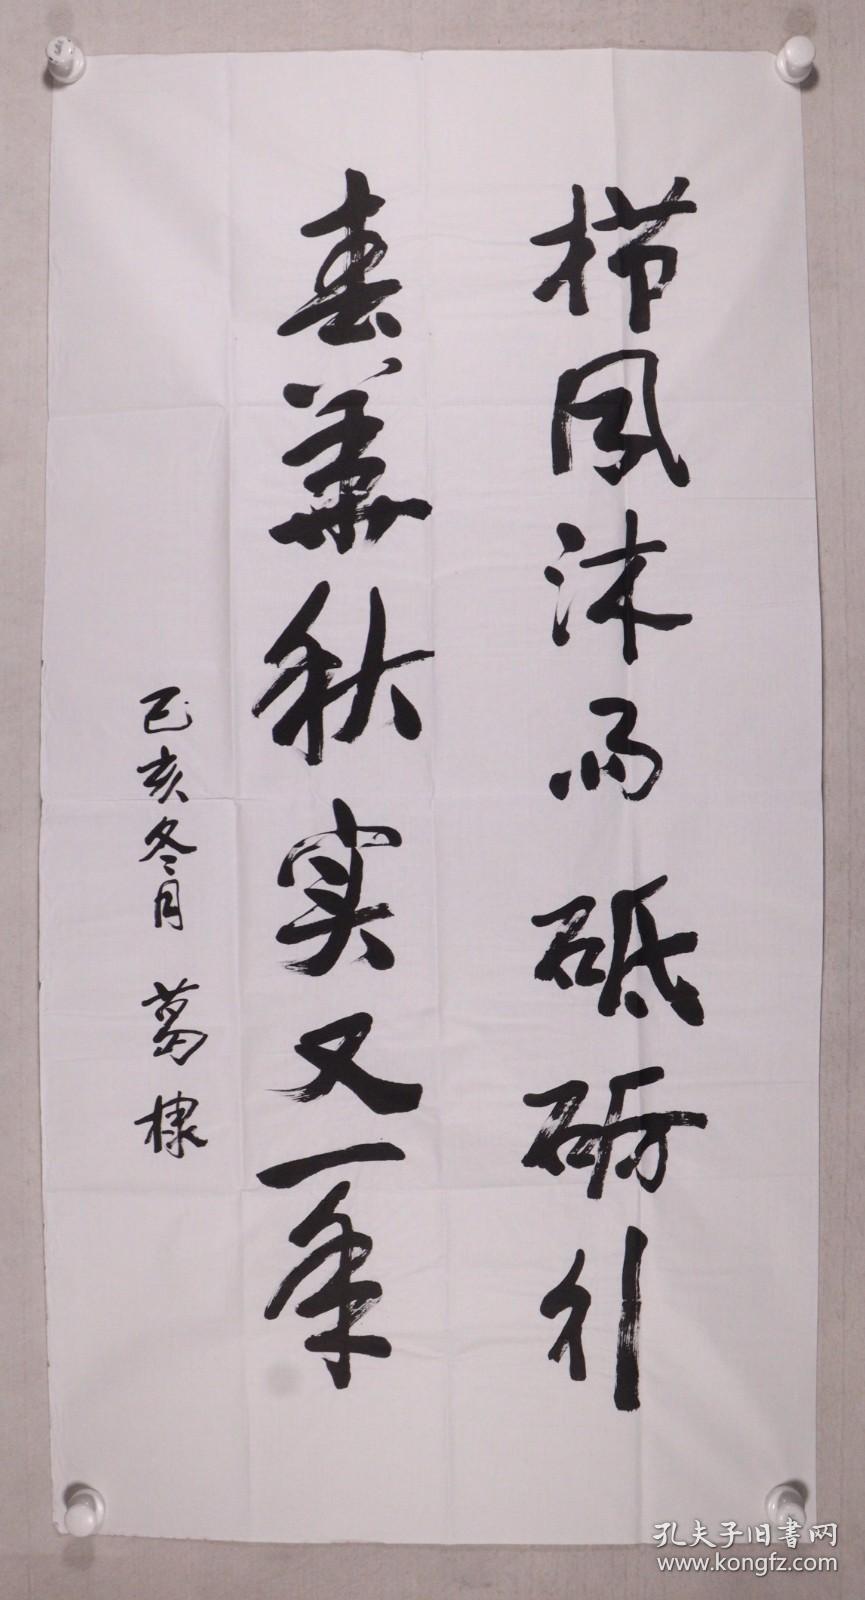 栉风沐雨砥砺行
春华秋实又一年
己亥冬月 葛棣
孔夫子旧书网
www.kongfz.com